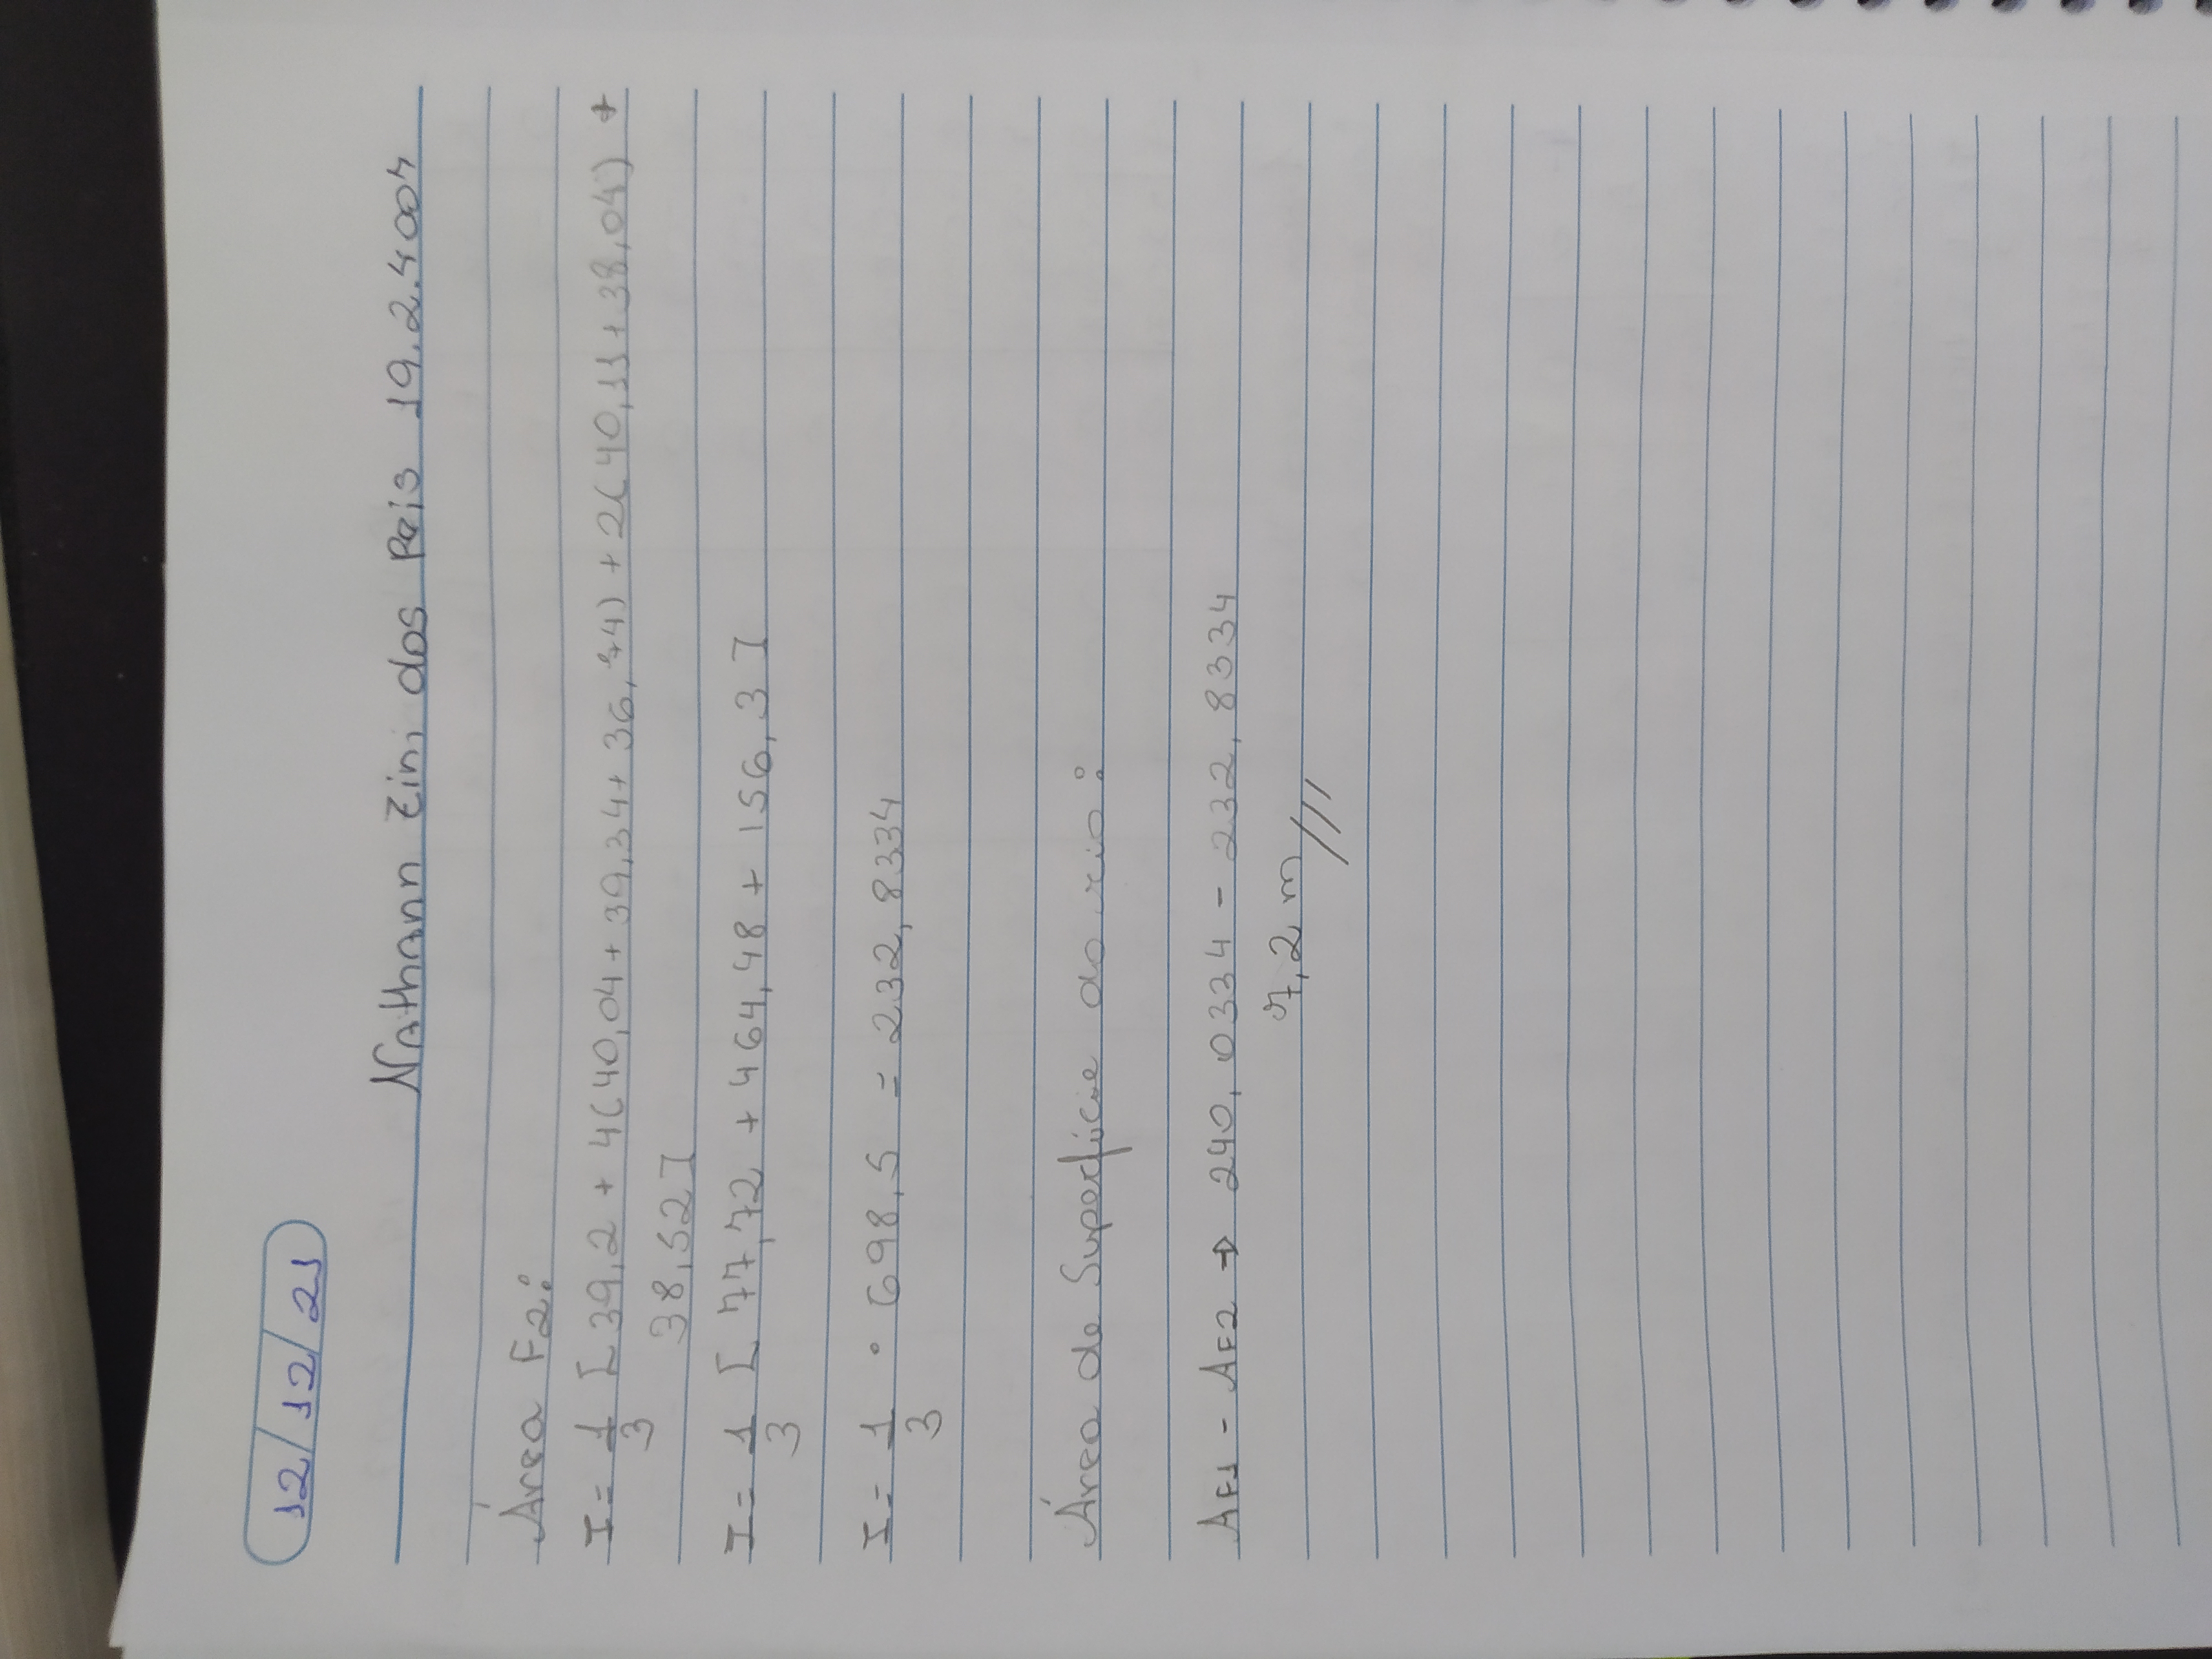 12/12/21
Nathann Zini dos Reis 19.2.4007
Área F2:
I = 1/3 [39,2 + 4(40,04 + 39,34 + 36,74) + 2(40,11 + 38,04) +
38,52]
I = 1/3 [77,72 + 464,48 + 156,3]
I = 1/3 · 698,5 = 232,8334
Área de Superfície do rio:
AF1 - AF2 ⇒ 240,0334 - 232,8334
7,2 m